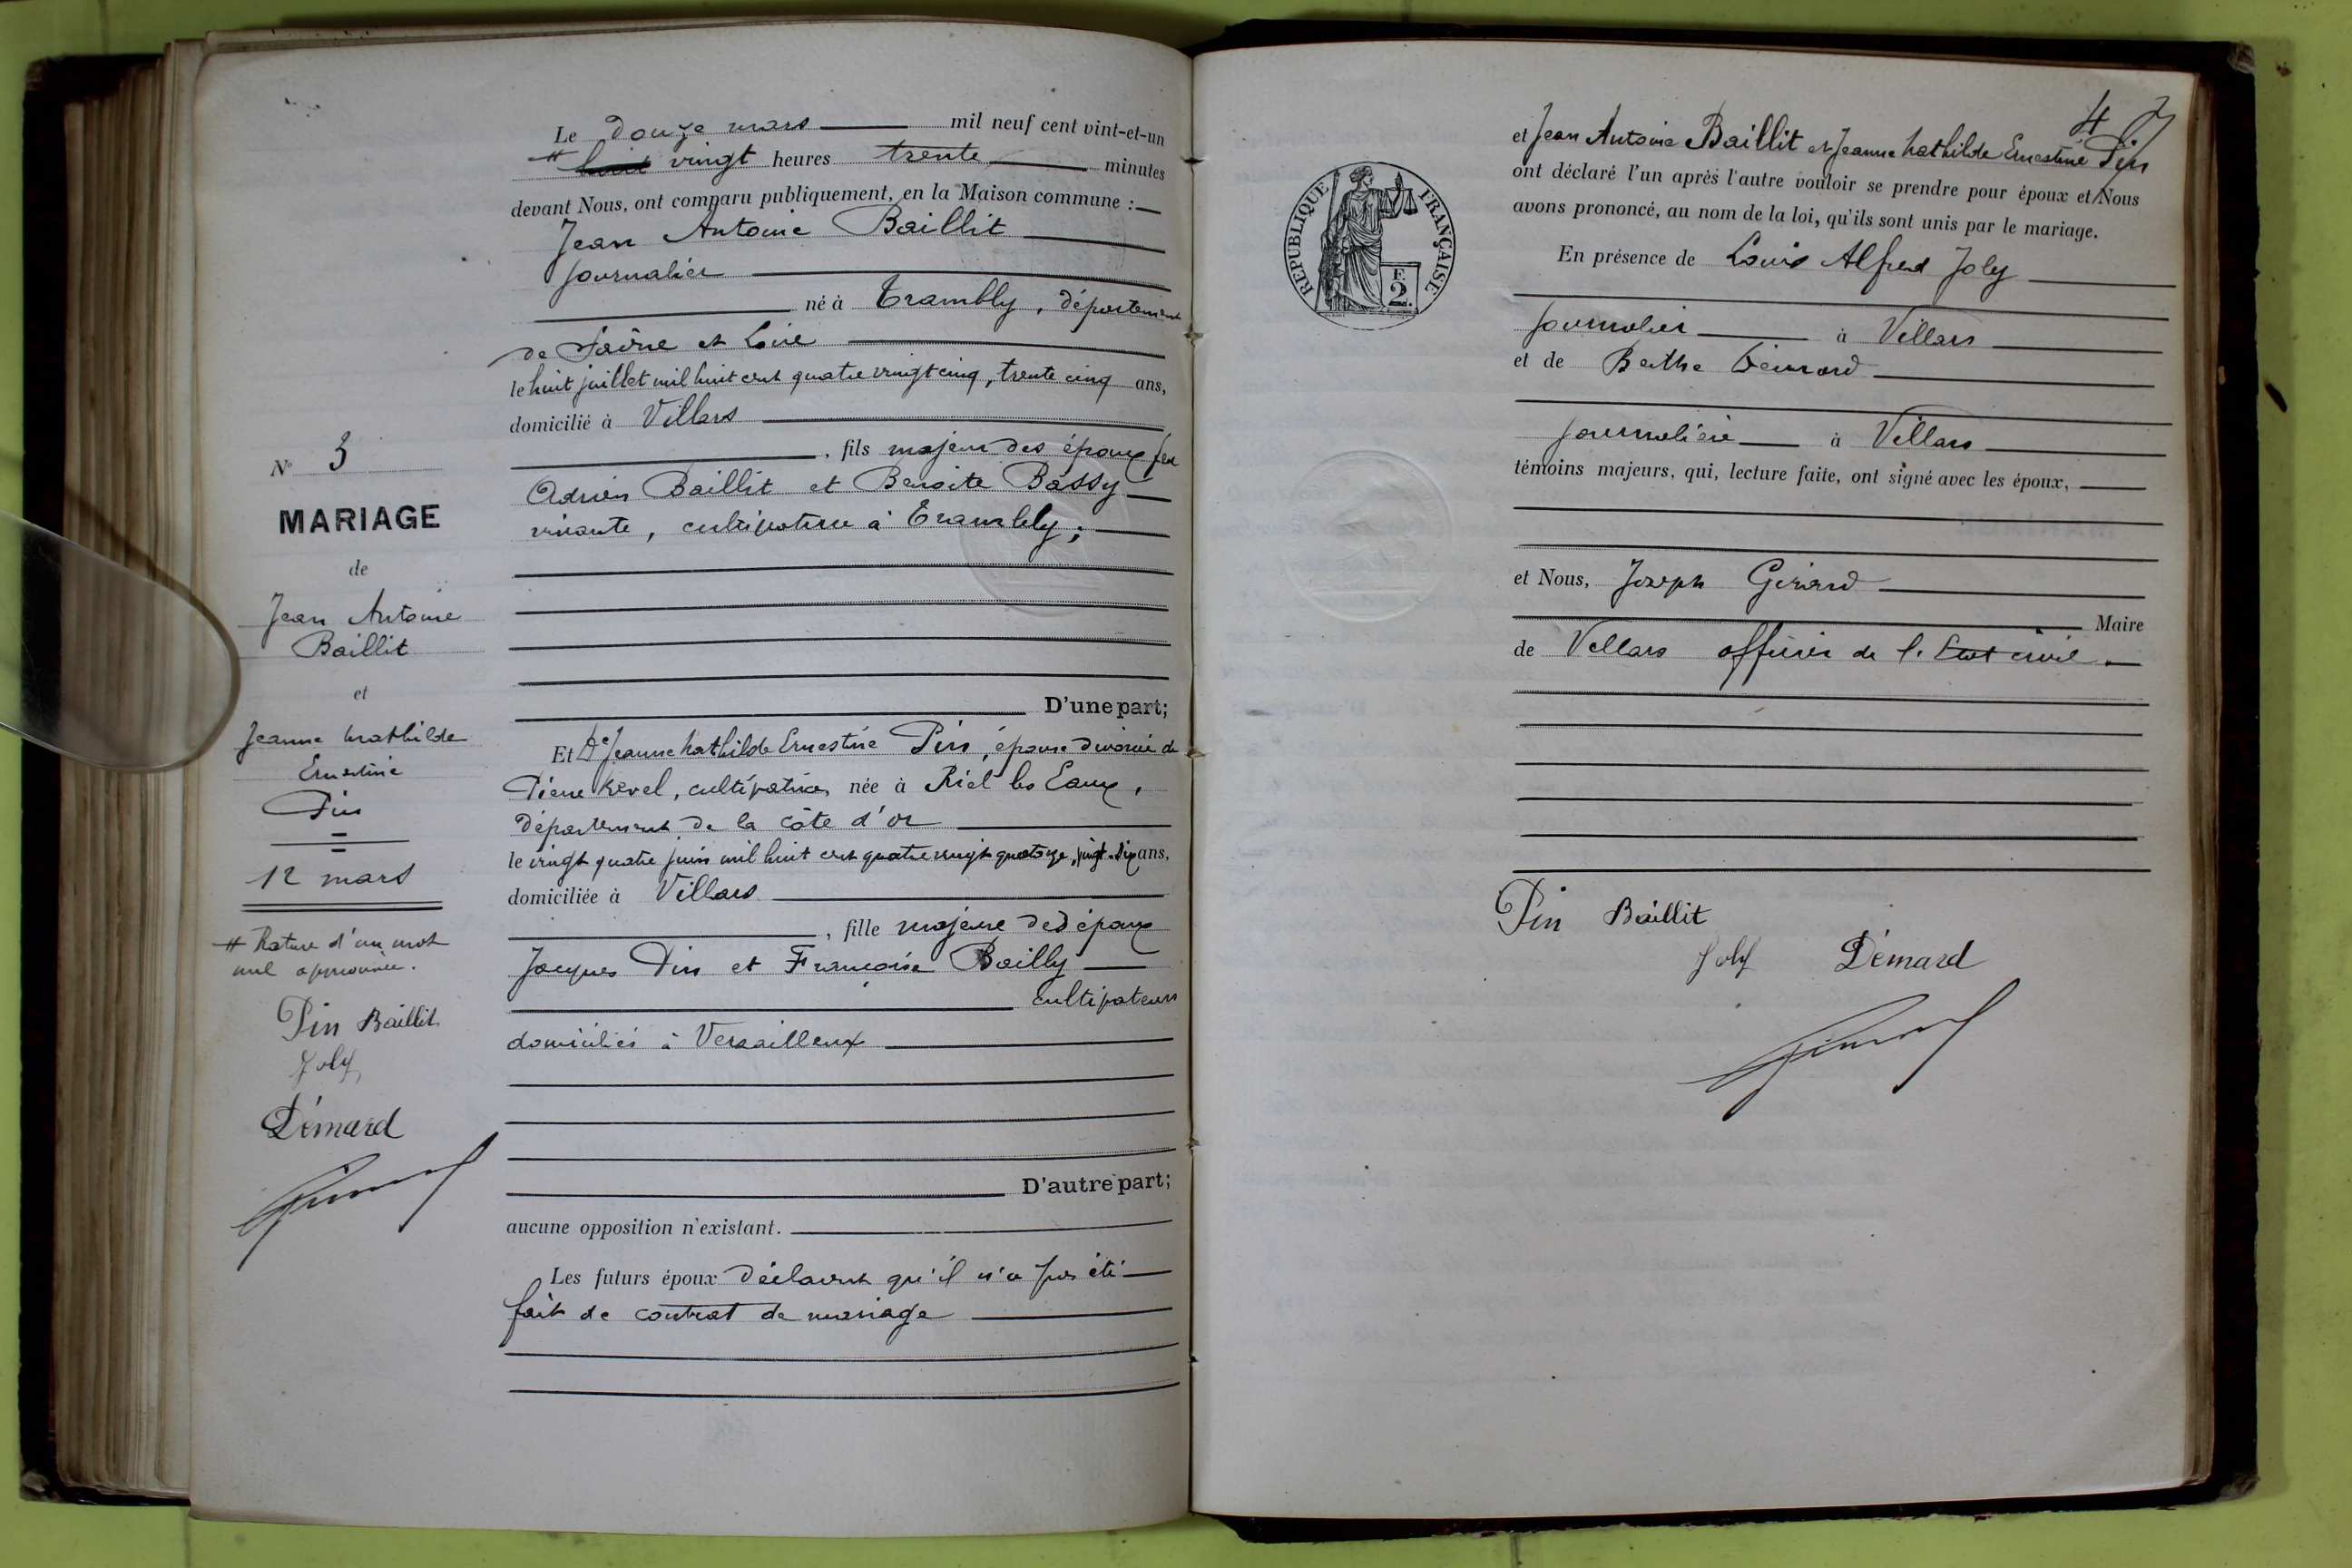 Le douze mars mil neuf cent vint-et-un
# huit vingt heures trente minutes
devant Nous, ont comparu publiquement, en la Maison commune :
Jean Antoine Baillit
journalier
né à Trambly, département
de Saône et Loire
le huit juillet mil huit cent quatre vingt cinq, trente cinq ans,
domicilié à Villars
, fils majeur des époux feu
Adrien Baillit et Benoite Bassy
vivante, cultivatrice à Trambly ;
D'une part;
Et De Jeanne Mathilde Ernestine Pin, épouse divorcée de
Pierre Revel, cultivatrice, née à Riel les Eaux,
département de la côte d'or
le vingt quatre juin mil huit cent quatre vingt quatorze, vingt-six ans,
domiciliée à Villars
, fille majeure des époux
Jacques Pin et Françoise Bailly
cultivateurs
domiciliés à Versailleux
D'autre part;
aucune opposition n'existant.
Les futurs époux déclarent qu'il n'a pas été
fait de contrat de mariage
N° 3
MARIAGE
de
Jean Antoine
Baillit
et
Jeanne Mathilde
Ernestine
Pin
12 mars
# Rature d'un mot
nul approuvée.
Pin Baillit
Joly
Démard
4
et Jean Antoine Baillit et Jeanne Mathilde Ernestine Pin
ont déclaré l'un après l'autre vouloir se prendre pour époux et Nous
avons prononcé, au nom de la loi, qu'ils sont unis par le mariage.
En présence de Louis Alfred Joly
journalier à Villars
et de Berthe Démard
journalière à Villars
témoins majeurs, qui, lecture faite, ont signé avec les époux,
et Nous, Joseph Girard
Maire
de Villars officier de l'Etat civil.
REPUBLIQUE FRANÇAISE
F.
2
Pin Baillit
Joly Démard